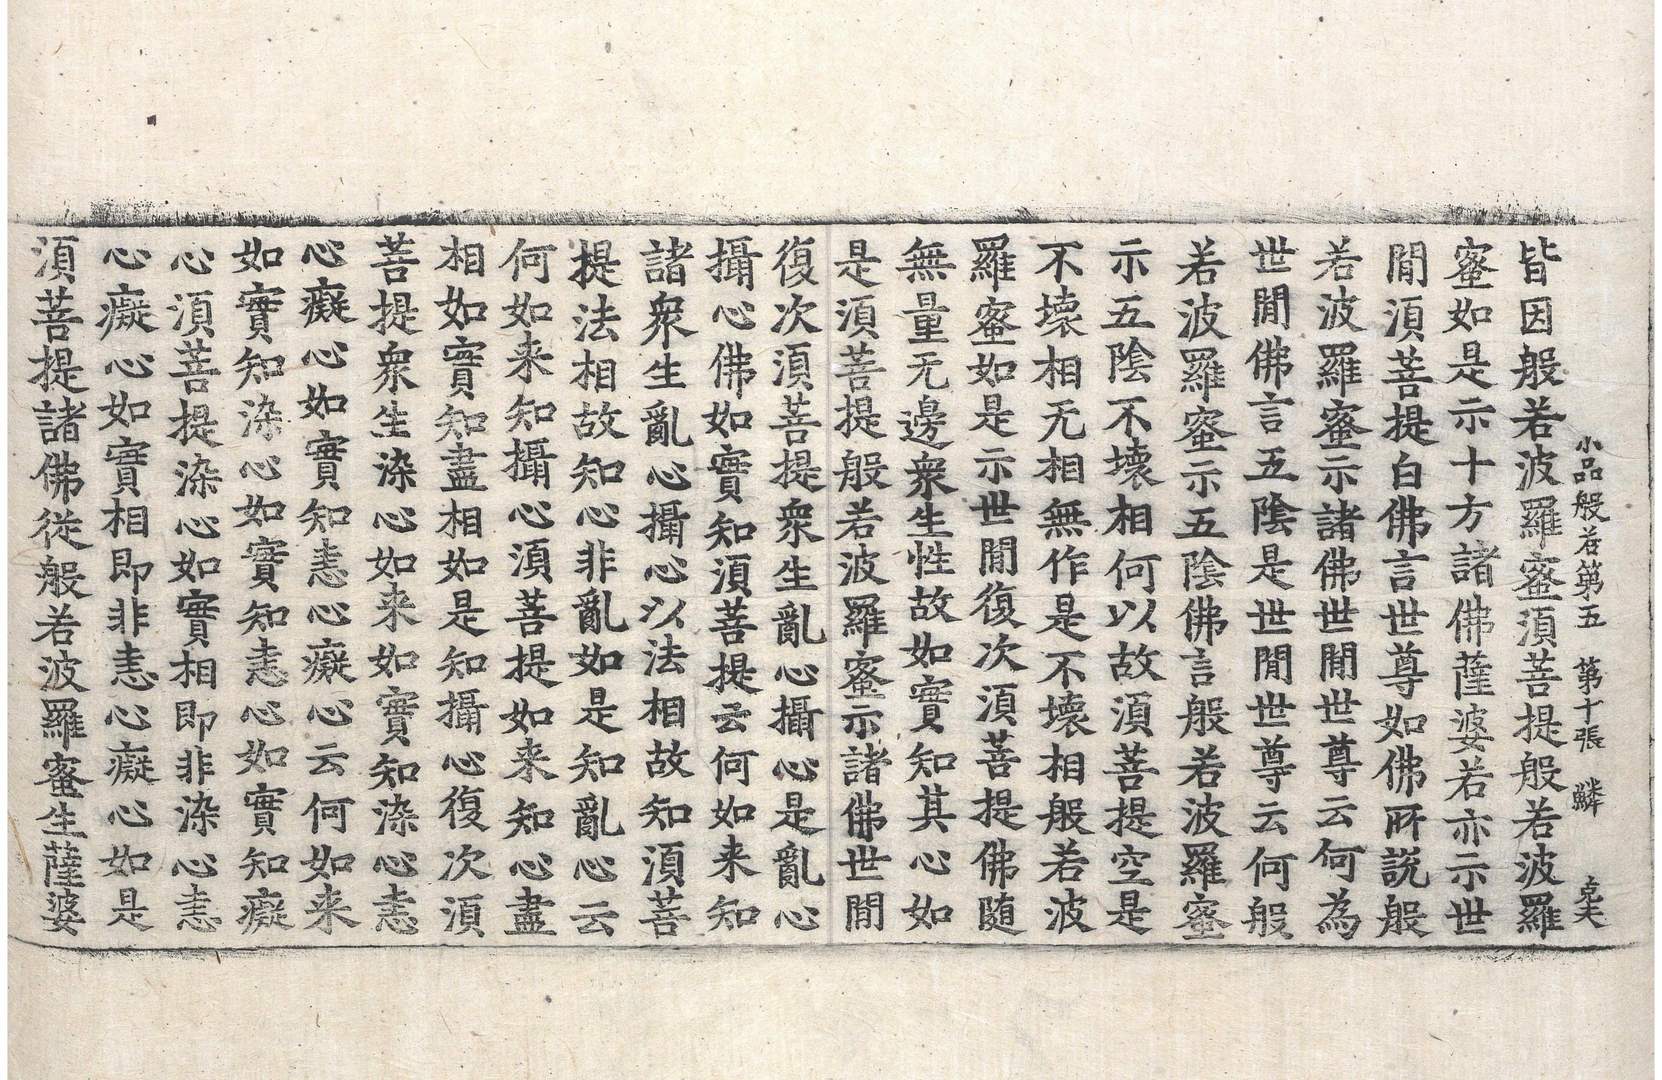 小品般若第五 第十張 鱗
皆因般若波羅蜜須菩提般若波羅
蜜如是示十方諸佛薩婆若亦示世
閒須菩提白佛言世尊如佛所說般
若波羅蜜示諸佛世閒世尊云何為
世閒佛言五陰是世閒世尊云何般
若波羅蜜示五陰佛言般若波羅蜜
示五陰不壞相何以故須菩提空是
不壞相无相無作是不壞相般若波
羅蜜如是示世閒復次須菩提佛随
無量无邊衆生性故如實知其心如
是須菩提般若波羅蜜示諸佛世閒
復次須菩提衆生亂心攝心是亂心
攝心佛如實知須菩提云何如来知
諸衆生亂心攝心以法相故知須菩
提法相故知心非亂如是知亂心云
何如来知攝心須菩提如来知心盡
相如實知盡相如是知攝心復次須
菩提衆生染心如来如實知染心恚
心癡心如實知恚心癡心云何如来
如實知染心如實知恚心如實知癡
心須菩提染心如實相即非染心恚
心癡心如實相即非恚心癡心如是
須菩提諸佛從般若波羅蜜生薩婆